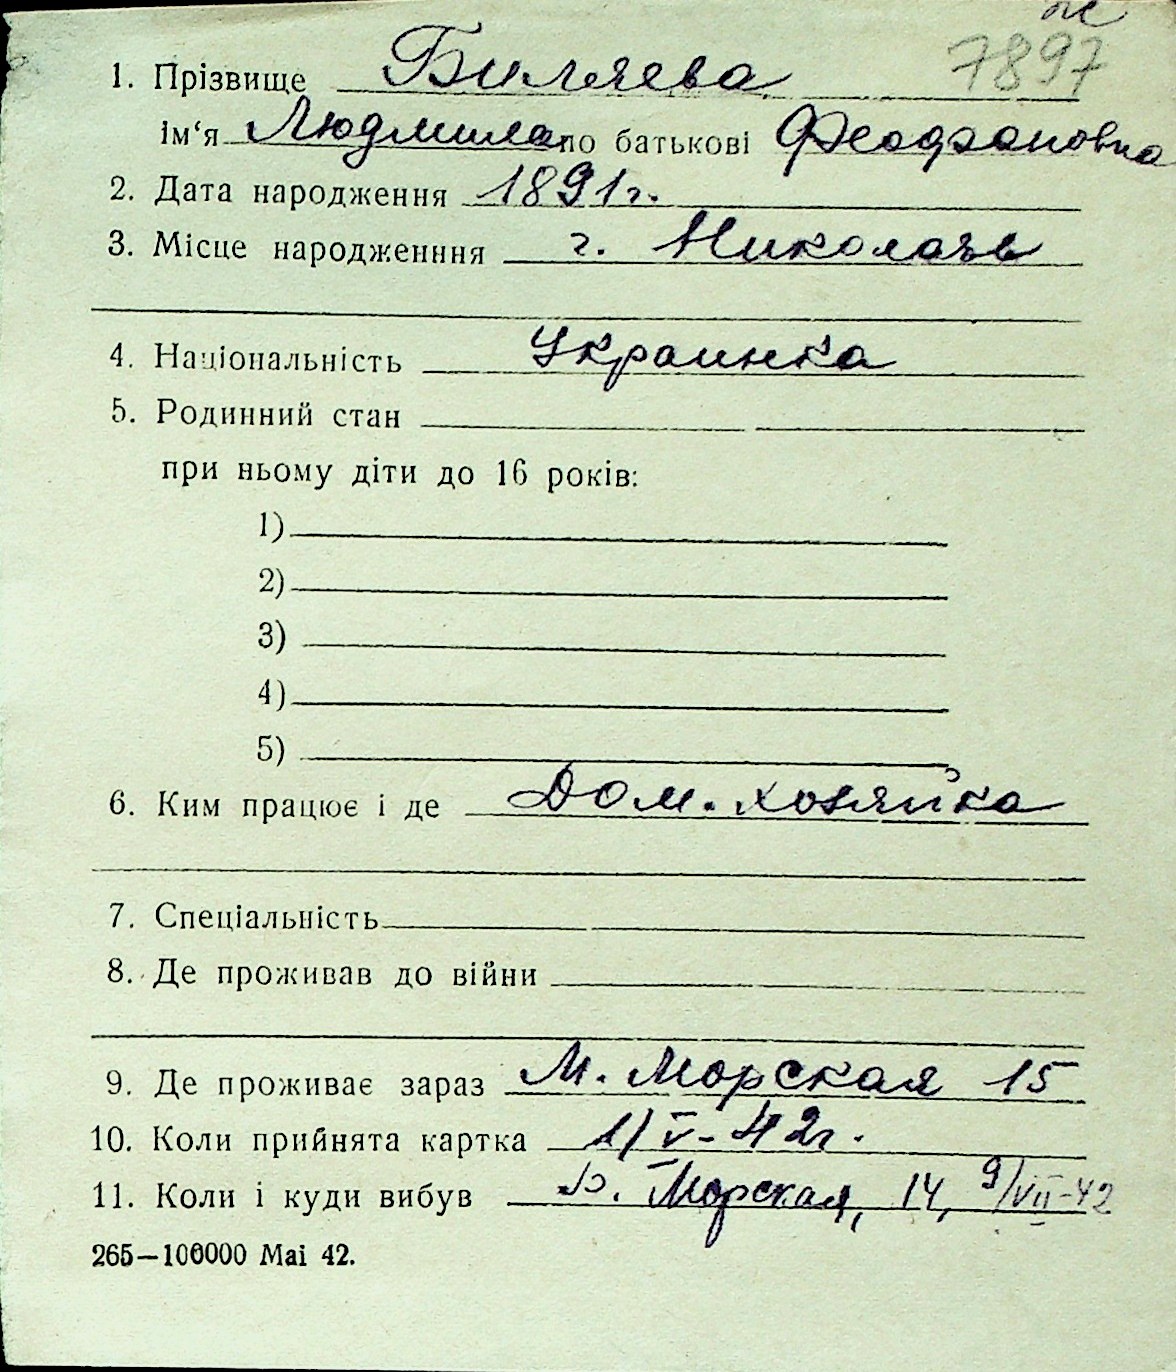 ж
7897
1. Прізвище Биляева
ім‘я Людмила по батькові Феофановна
2. Дата народження 1891г.
3. Місце народженння г. Николаев
4. Національність Украинка
5. Родинний стан
при ньому діти до 16 років:
1)
2)
3)
4)
5)
6. Ким працює і де Дом. хозяйка
7. Спеціальність
8. Де проживав до війни
9. Де проживає зараз М. Морская 15
10. Коли прийнята картка 1/V-42г.
11. Коли і куди вибув В. Морская, 14, 9/VII-42
265—100000 Mai 42.